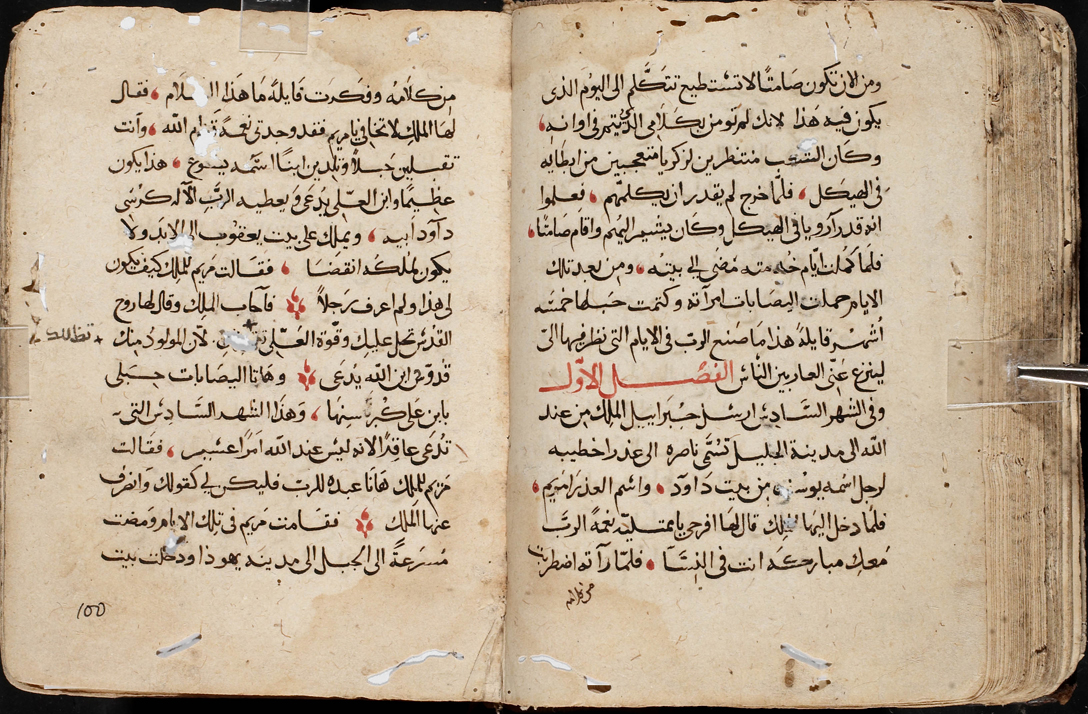 ومن الان تكون صامتًا لا تستطيع تتكلم الى اليوم الذى
يكون فيه هذا لانك لم تومن بكلامى الذى يتم فى اوانه
وكان الشعب منتظرين لزكريا متعجبين من ابطايه
فى الهيكل فلما خرج لم يقدر ان يكلمهم فعلموا
انه قد رآ رويا فى الهيكل وكان يشير اليهم واقام صامتًا
فلما كملت ايام خدمته مضى الى بيته ومن بعد تلك
الايام حملت اليصابات امرآته وكتمت حبلها خمسه
أشهر قايلة هذا ما صنع الرب فى الايام التى نظر فيها الىّ
لينزع عنى العار بين الناس الفصل الاول
وفى الشهر السادس ارسل جبراييل الملك من عند
الله الى مدينة الجليل تسمى ناصره الى عذرا خطيبه
لرجل اسمه يوسف من بيت داوود واسم العذرا مريم
فلما دخل اليها الملك قال لها افرحى يا ممتليه نعمة الرب
معك مباركه انت فى النسا فلما رآته اضطربت
من كلامه
من كلامه وفكرت قايلة ما هذا السلام فقال
لها الملك لا تخافى يا مريم فقد وجدتى نعمة قدام الله وآنت
تقبلين حبلاً وتلدين ابنًا اسمه يسوع هذا يكون
عظيمًا وابن العلى يدعى ويعطيه الرب الآله كرسى
داود ابيه ويملك على بيت يعقوب الى الابد ولا
يكون لملكه انقضا فقالت مريم للملك كيف يكون
لى هذا ولم اعرف رجلاً فآجاب الملك وقال لها روح
القدس تحل عليك وقوة العلى لان المولود منك
+ تظللك
قدوس ابن الله يدعى وهانا اليصابات حبلى
بابن على كبر سنها وهذا الشهر السادس التى
تدعى عاقرًا لانه ليس عند الله امرًا عسير فقالت
مريم للملك هانا عبده للرب فليكن لى كقولك وانصرف
عنها الملك فقامت مريم فى تلك الايام ومضت
مسرعةً الى الجبل الى مدينه يهوذا ودخلت بيت
100